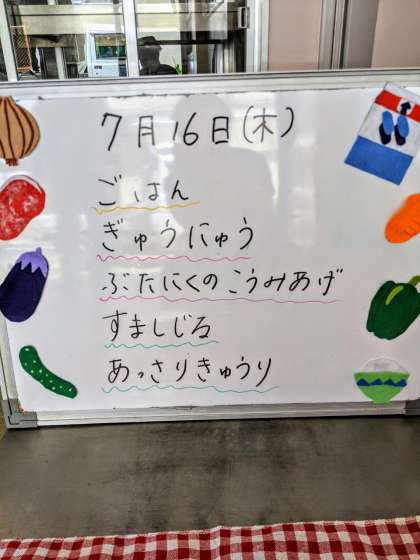 7月16日(木)
ごはん
ぎゅうにゅう
ぶたにくのこうみあげ
すましじる
あっさりきゅうり